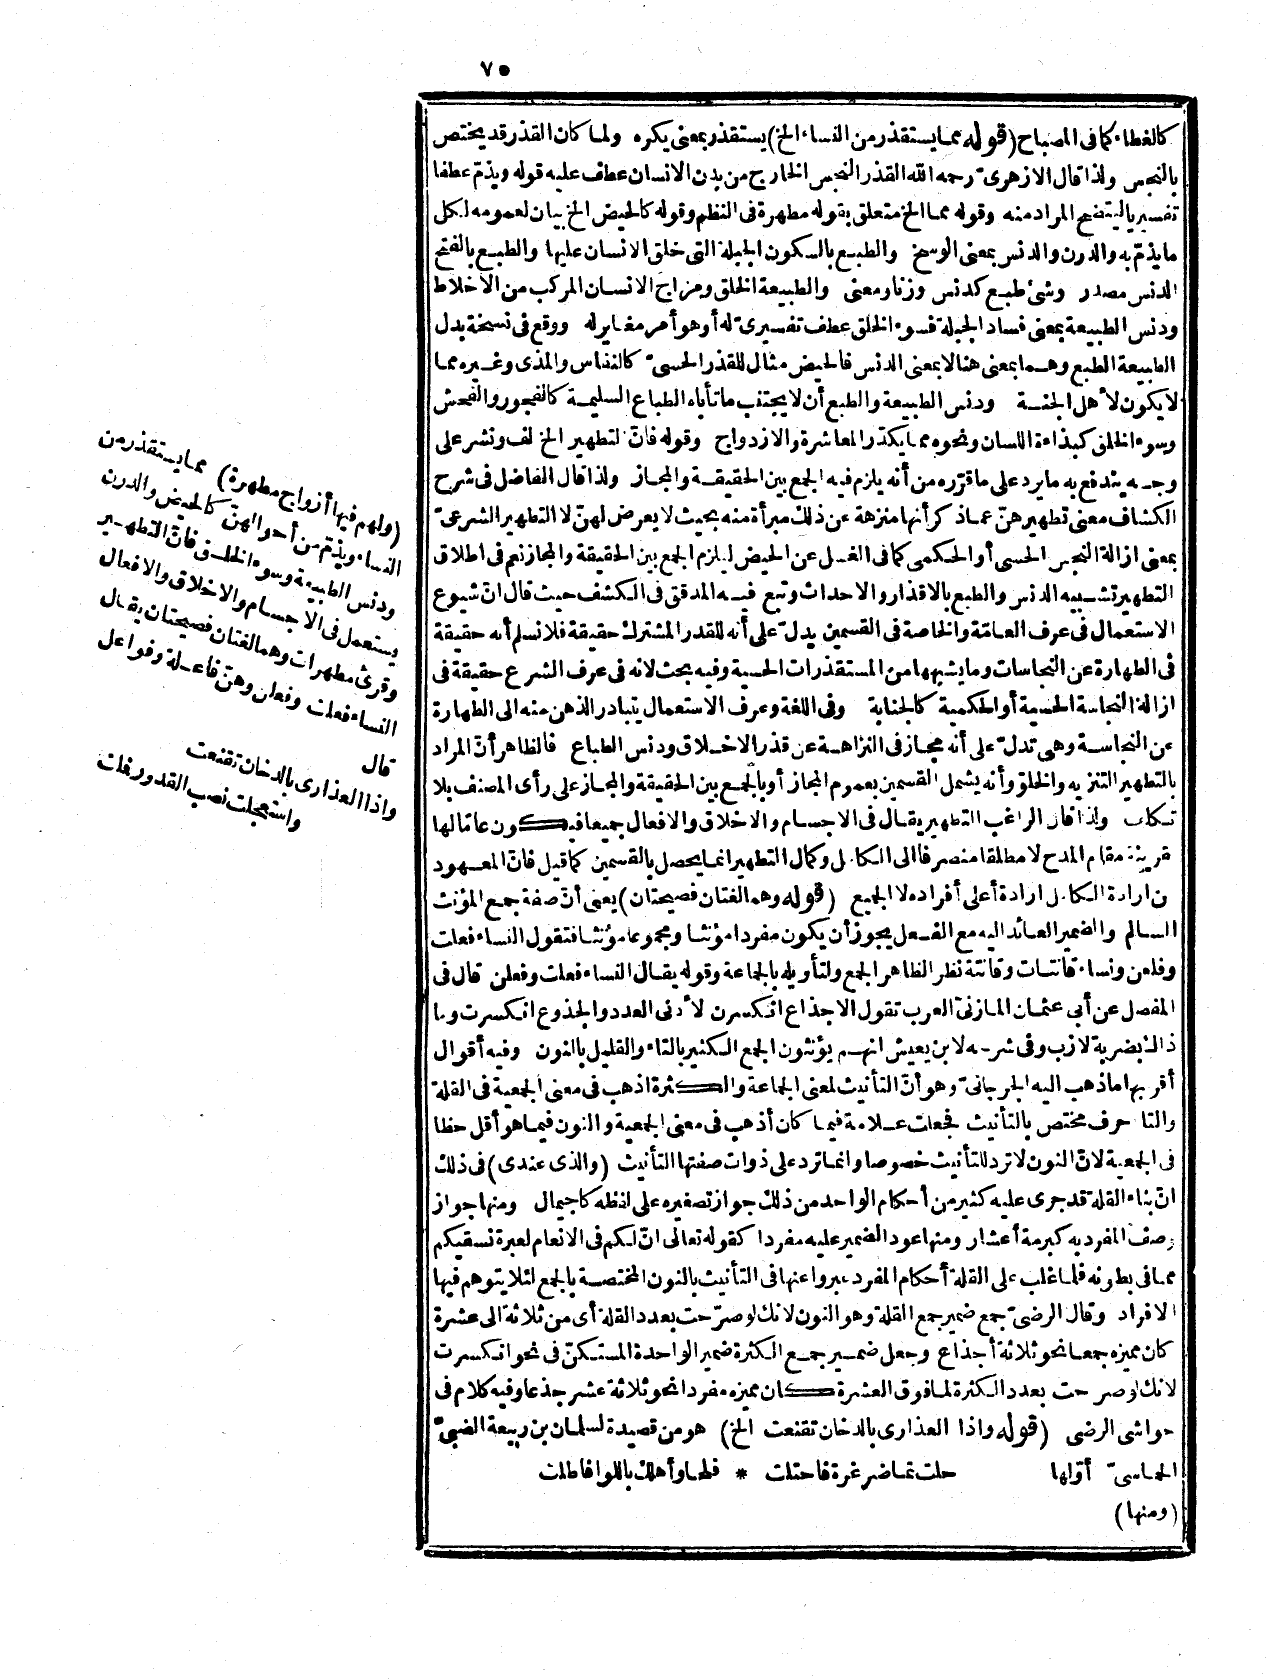 ٧٥
كالغطاء كما فى المصباح (قوله مما يستقذر من النساء الخ) يستقذر بمعنى يكره ولما كان القذر قد يختص
بالنجس ولذا قال الازهرىّ رحمه الله القذر النجس الخارج من بدن الانسان عطف عليه قوله ويذمّ عطفا
تفسيريا ليتضح المراد منه وقوله مما الخ متعلق بقوله مطهرة فى النظم وقوله كالحيض الخ بيان لعمومه لكل
ما يذمّ به والدرن والدنس بمعنى الوسخ والطبع بالسكون الجبلة التى خلق الانسان عليها والطبع بالفتح
الدنس مصدر وشئ طبع كدنس وزنا ومعنى والطبيعة الخلق ومزاج الانسان المركب من الاخلاط
ودنس الطبيعة بمعنى فساد الجبلة فسوء الخلق عطف تفسيرىّ له أو هو أمر مغاير له ووقع فى نسخة بدل
الطبيعة الطبع وهما بمعنى هنا لا بمعنى الدنس فالحيض مثال للقذر الحسىّ كالنفاس والمذى وغيره مما
لا يكون لأهل الجنة ودنس الطبيعة والطبع أن لا يجتنب ما تأباه الطباع السليمة كالفجور والفحش
وسوء الخلق كبذاءة اللسان ونحوه مما يكدّر المعاشرة والازدواج وقوله فانّ لتطهير الخ لف ونشر على
وجه يندفع به ما يرد على ما قرّره من أنه يلزم فيه الجمع بين الحقيقة والمجاز ولذا قال الفاضل فى شرح
الكشاف معنى تطهيرهنّ عما ذكر أنها منزهة عن ذلك مبرأة منه بحيث لا يعرض لهنّ لا التطهير الشرعىّ
بمعنى ازالة النجس الحسى أو الحكمى كما فى الغسل عن الحيض ليلزم الجمع بين الحقيقة والمجاز نعم فى اطلاق
التطهير تشبيه الدنس والطبع بالاقذار والاحداث وتبع فيه المدقق فى الكشف حيث قال انّ شيوع
الاستعمال فى عرف العامّة والخاصة فى القسمين يدلّ على أنه للقدر المشترك حقيقة فلا نسلم أنه حقيقة
فى الطهارة عن النجاسات وما يشبهها من المستقذرات الحسية وفيه بحث لانه فى عرف الشرع حقيقة فى
ازالة النجاسة الحسية أو الحكمية كالجنابة وفى اللغة وعرف الاستعمال يتبادر الذهن منه الى الطهارة
عن النجاسة وهى تدلّ على أنه مجاز فى النزاهة عن قذر الاخلاق ودنس الطباع فالظاهر أنّ المراد
بالتطهير التنزيه والخلق وأنه يشمل القسمين بعموم المجاز أو بالجمع بين الحقيقة والمجاز على رأى المصنف بلا
تكلف ولذا قال الراغب التطهير يقال فى الاجسام والاخلاق والافعال جميعا فيكون عامّا لها
قرينة مقام المدح لا مطلقا منصرفا الى الكامل وكمال التطهير انما يحصل بالقسمين كما قيل فانّ المعهود
من ارادة الكامل ارادة أعلى أفراده لا الجميع (قوله وهما لغتان فصيحتان) يعنى أنّ صفة جمع المؤنث
السالم والضمير العائد اليه مع الفعل يجوز أن يكون مفردا مؤنثا ومجموعا مؤنثا فتقول النساء فعلت
وفعلن ونساء قانتات وقانتة نظرا لظاهر الجمع ولتأويله بالجماعة وقوله يقال النساء فعلت وفعلن قال فى
المفصل عن أبى عثمان المازنىّ العرب تقول الاجذاع انكسرن لأدنى العدد والجذوع انكسرت وما
ذاك بضربة لازب وفى شرحه لابن يعيش انهم يؤنثون الجمع الكثير بالتاء والقليل بالنون وفيه أقوال
أقربها ما ذهب اليه الجرجانىّ وهو أنّ التأنيث لمعنى الجماعة والكثرة اذهب فى معنى الجمعية فى القلة
والتا حرف مختص بالتأنيث فجعلت علامة فيما كان أذهب فى معنى الجمعية والنون فيما هو أقل حظا
فى الجمعية لانّ النون لا ترد للتأنيث خصوصا وانما ترد على ذوات صفتها التأنيث (والذى عندى) فى ذلك
انّ بناء القلة قد جرى عليه كثير من أحكام الواحد من ذلك جواز تصغيره على لفظه كاجيمال ومنها جواز
وصف المفرد به كبرمة أعشار ومنها عود الضمير عليه مفردا كقوله تعالى انّ لكم فى الانعام لعبرة نسقيكم
مما فى بطونه فلما غلب على القلة أحكام المفرد عبروا عنها فى التأنيث بالنون المختصة بالجمع لئلا يتوهم فيها
الافراد وقال الرضىّ جمع ضمير جمع القلة وهو النون لانك لو صرّحت بعدد القلة أى من ثلاثة الى عشرة
كان مميزه جمعا نحو ثلاثة أجذاع وجعل ضمير جمع الكثرة ضمير الواحدة المستكنّ فى نحو انكسرت
لانك لو صرحت بعدد الكثرة لما فوق العشرة كان مميزه مفردا نحو ثلاثة عشر جذعا وفيه كلام فى
حواشى الرضى (قوله واذا العذارى بالدخان تقنعت الخ) هو من قصيدة لسلمان بن ربيعة الضبىّ
الحماسىّ أوّلها حلت تماضر غربة فاحتلت * فلجا وأهلك باللوا فالحلت
(ومنها)
(ولهم فيها أزواج مطهرة) مما يستقذر من
النساء ويذمّ من أحوالهنّ كالحيض والدرن
ودنس الطبيعة وسوء الخلق فانّ التطهير
يستعمل فى الاجسام والاخلاق والافعال
وقرئ مطهرات وهما لغتان فصيحتان يقال
النساء فعلت وفعلن وهنّ فاعلة وفواعل
قال
واذا العذارى بالدخان تقنعت
واستعجلت نصب القدور فملت